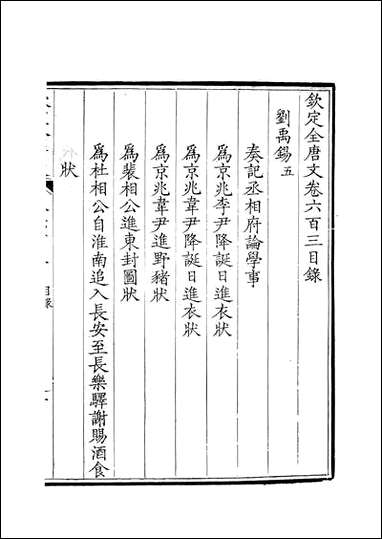 欽定全唐文卷六百三目錄
劉禹錫五
奏記丞相府論學事
為京兆李尹降誕日進衣狀
為京兆韋尹降誕日進衣狀
為京兆韋尹進野豬狀
為裴相公進東封圖狀
為杜相公自淮南追入長安至長樂驛謝賜酒食
狀
目錄